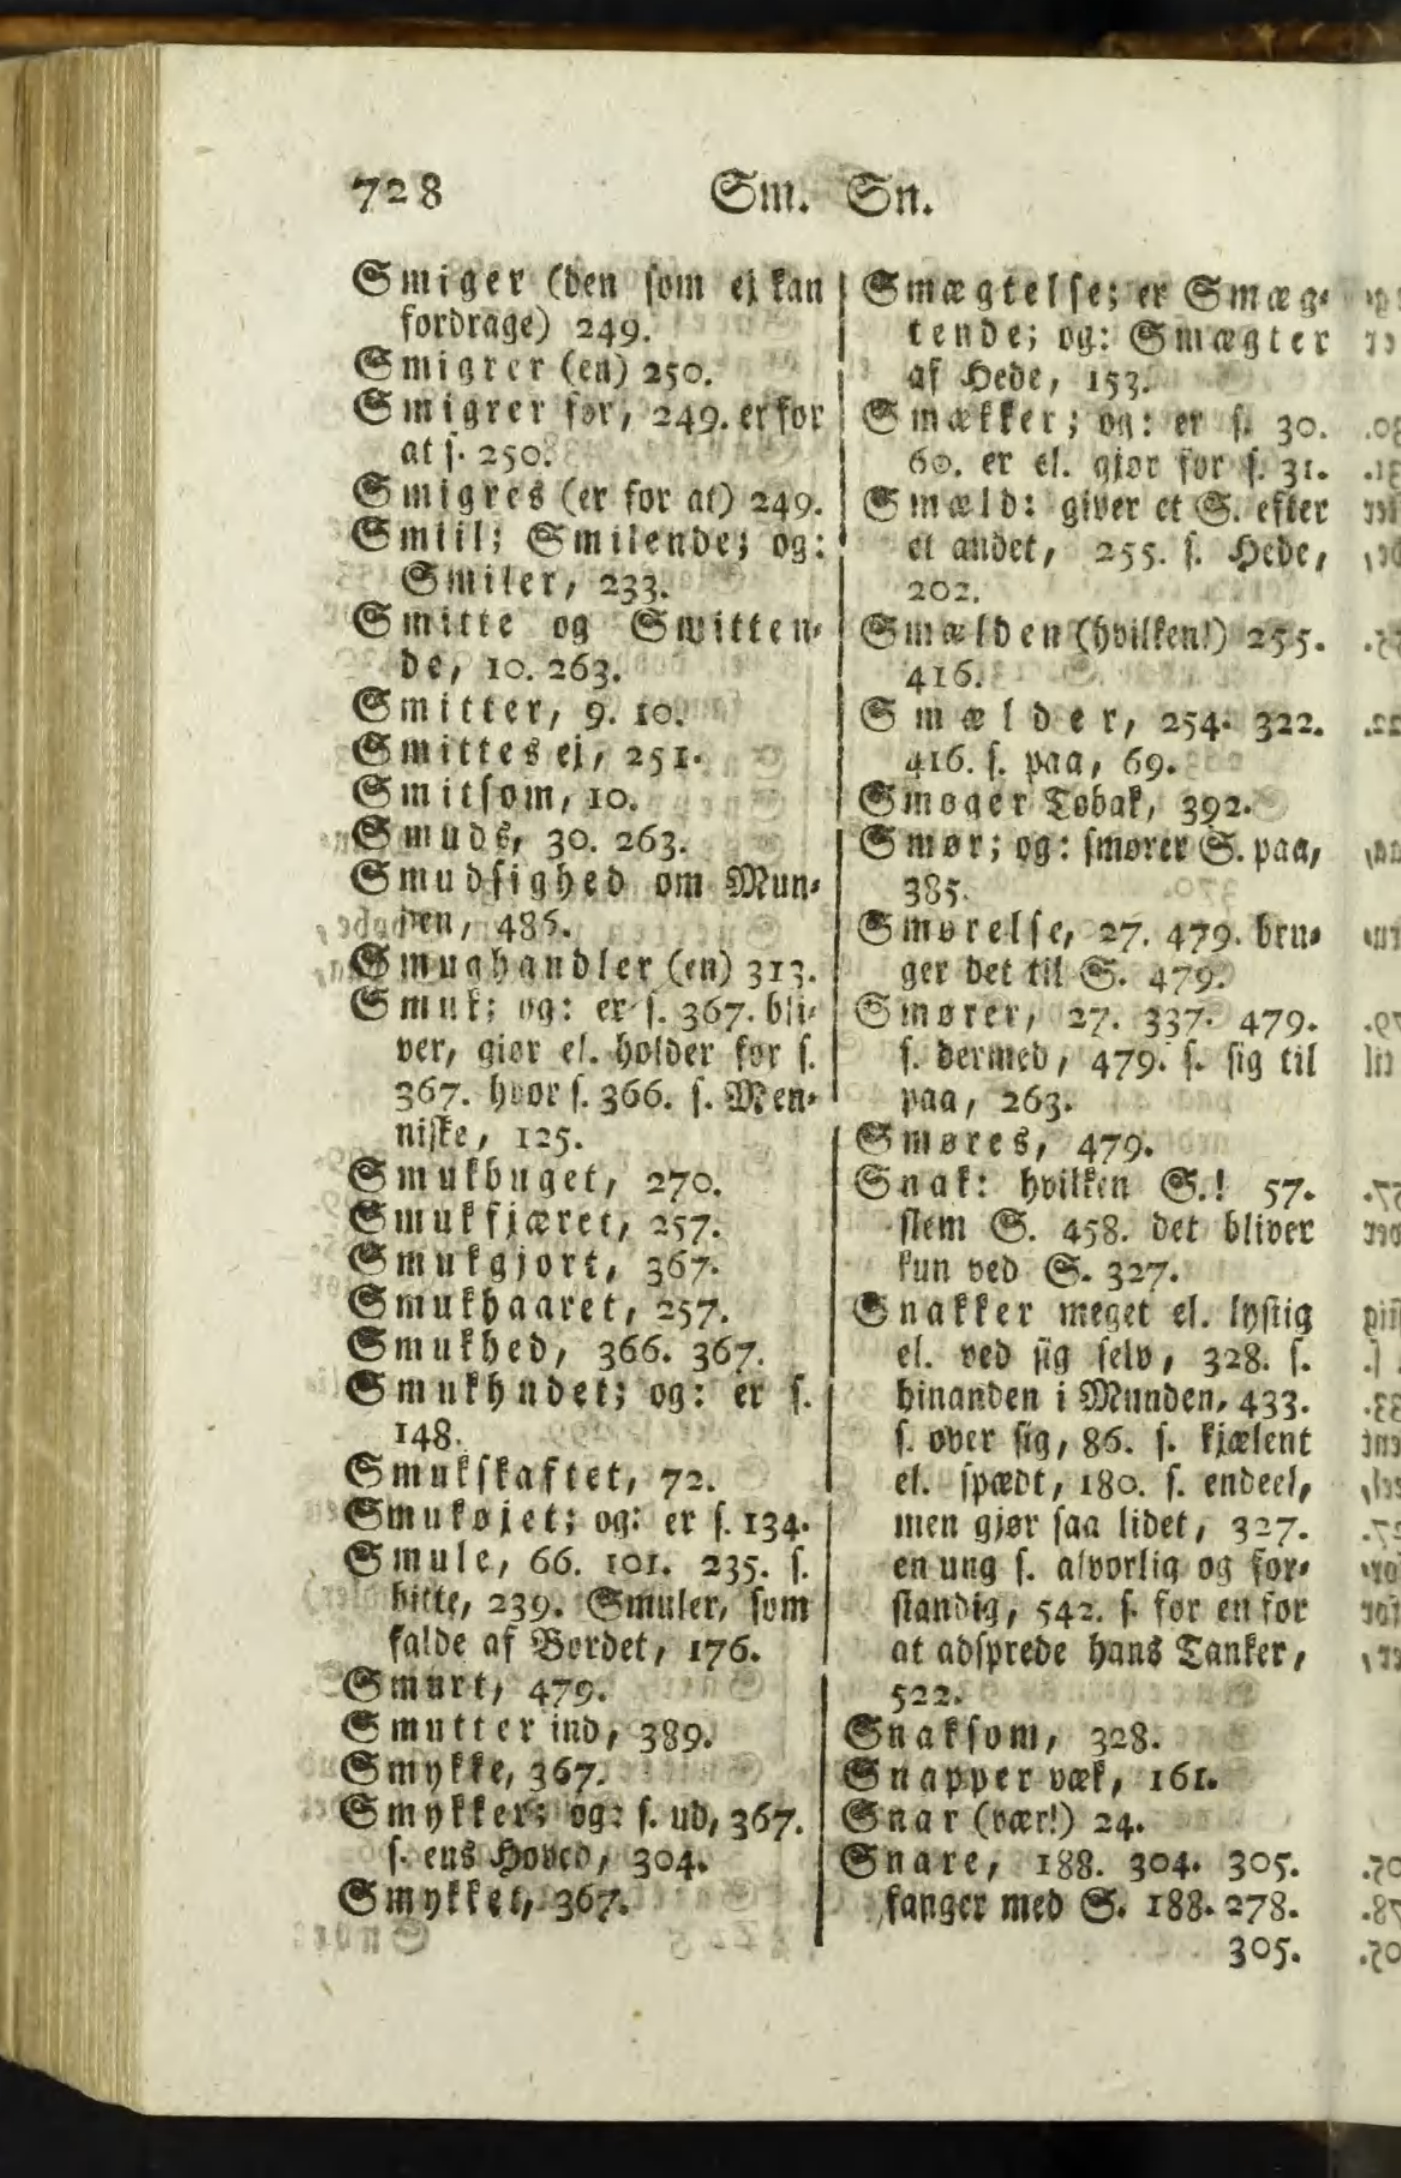 728 Sm. Sn.
Smiger (den som ej kan
fordrage) 249.
Smigrer (en) 250.
Smigrer for, 249. er for
at s. 250.
Smigres (er for at) 249.
Smiil; Smilende; og:
Smiler, 233.
Smitte og Smitten-
de, 10. 263.
Smitter, 9. 10.
Smittes ej, 251.
Smitsom, 10.
Smuds, 30. 263.
Smudsighed om Mun-
den, 485.
Smughandler (en) 313.
Smuk; og: er s. 367. bli-
ver, giør el. holder for s.
367. hvor s. 366. s. Men-
niske, 125.
Smukbuget, 270.
Smukfjæret, 257.
Smukgjort, 367.
Smukhaaret, 257.
Smukhed, 366. 367.
Smukhudet; og: er s.
148.
Smukskaftet, 72.
Smukøjet; og: er s. 134.
Smule, 66. 101. 235. s.
bitte, 239. Smuler, som
falde af Bordet, 176.
Smurt, 479.
Smutter ind, 389.
Smykke, 367.
Smykker; og: s. ud, 367.
s. ens Hoved, 304.
Smykket, 367.
Smægtelse; er Smæg-
tende; og: Smægter
af Hede, 153.
Smækker; og: er s. 30.
60. er el. gjør for s. 31.
Smæld: giver et S. efter
et andet, 255. s. Hede,
202.
Smælden (hvilken!) 255.
416.
Smælder, 254. 322.
416. s. paa, 69.
Smøger Tobak, 392.
Smør; og: smører S. paa,
385.
Smørelse, 27. 479. bru-
ger det til S. 479.
Smører, 27. 337. 479.
s. dermed, 479. s. sig til
paa, 263.
Smøres, 479.
Snak: hvilken S.! 57.
slem S. 458. det bliver
kun ved S. 327.
Snakker meget el. lystig
el. ved sig selv, 328. s.
hinanden i Munden, 433.
s. over sig, 86. s. kjælent
el. spædt, 180. s. endeel,
men gjør saa lidet, 327.
en ung s. alvorlig og for-
standig, 542. s. for en for
at adsprede hans Tanker,
522.
Snaksom, 328.
Snapper væk, 161.
Snar (vær!) 24.
Snare, 188. 304. 305.
fanger med S. 188. 278.
305.